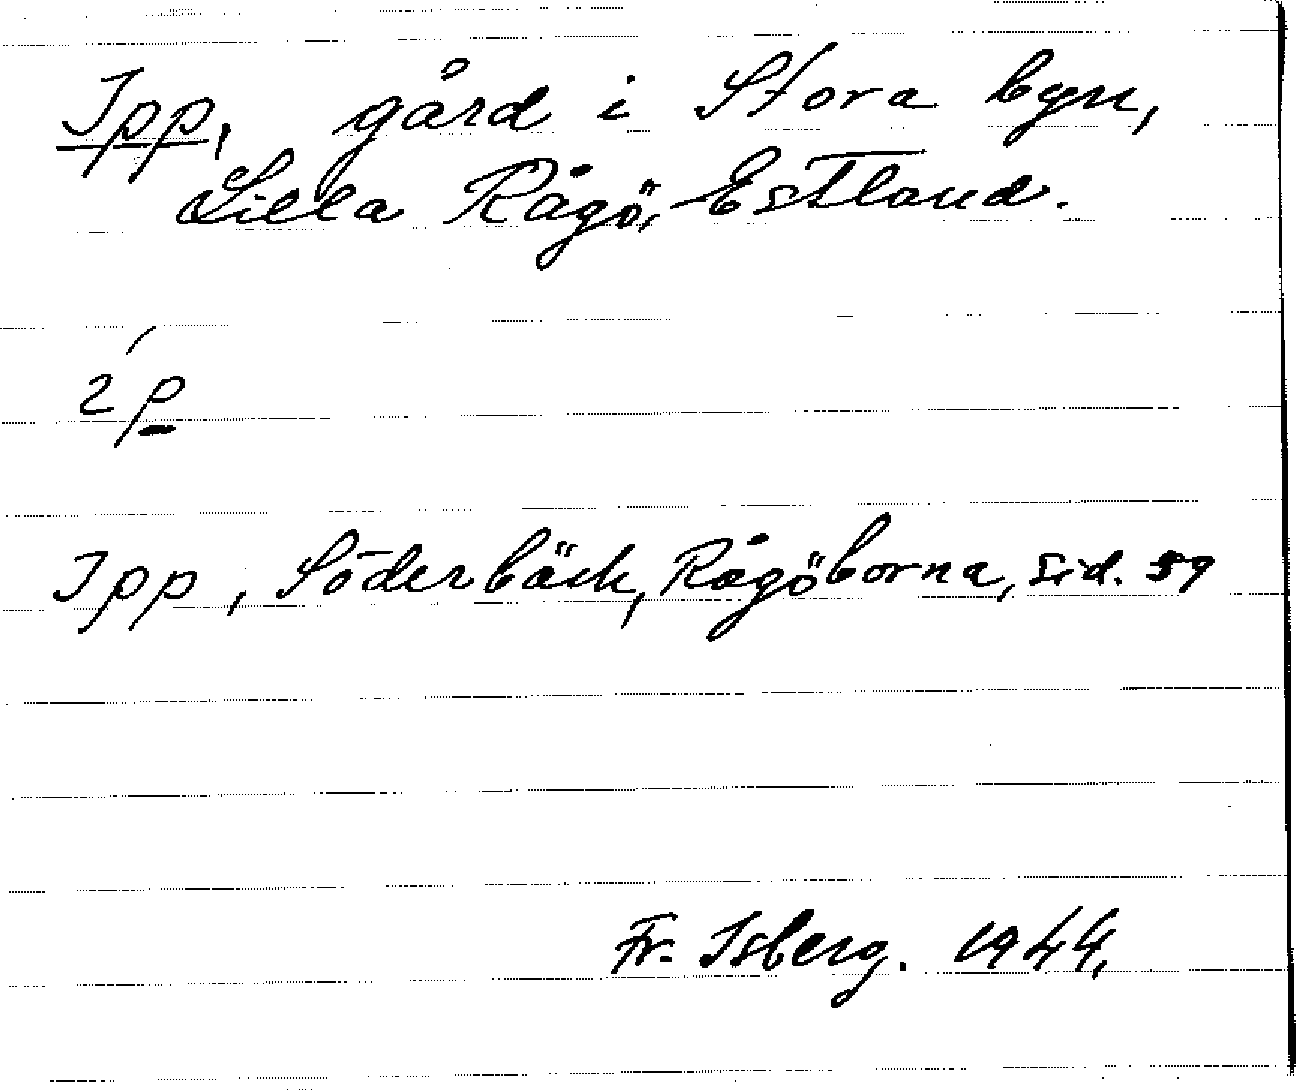 Ipp, gård i Stora byn,
Lilla Rågö, Estland.
ı́p̱
Ipp, Söderbäck, Rågöborna, sid. 59
Fr. Isberg. 1944.